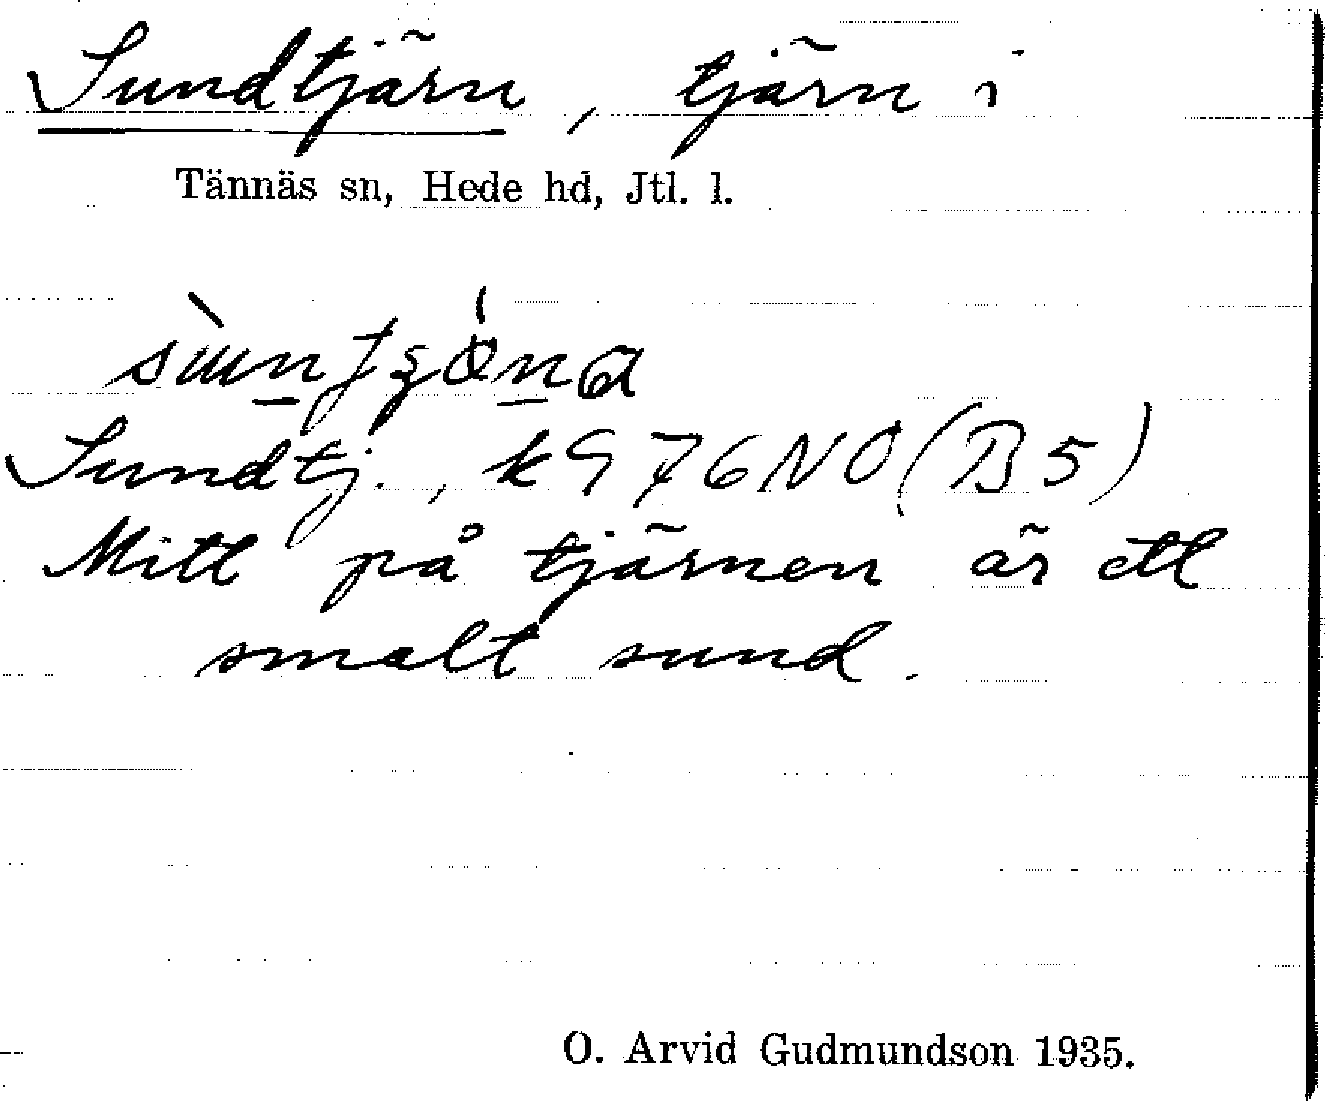 Sundtjärn, tjärn i
Tännäs sn, Hede hd, Jtl. l.
Sundtj., k976NO(B5)
Mitt på tjärnen är ett
smalt sund.
O. Arvid Gudmundson 1935.